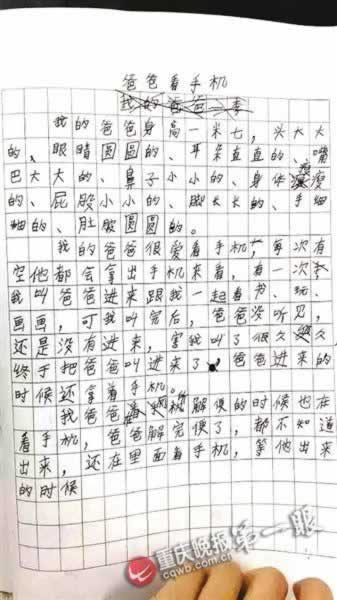 爸爸看手机
我的爸爸
我的爸爸身高一米七，头大大
的、眼睛圆圆的、耳朵直直的、嘴
巴大大的、鼻子小小的、身体瘦瘦
的、屁股小小的、脚长长的、手细
细的、肚股圆圆的。
我的爸爸很爱看手机，每次有
空他都会拿出手机来看，有一次，
我叫爸爸进来跟我一起看书、玩、
画画，可我叫完后，爸爸没听见，
还是没有进来，害我叫了很久很久，
终于把爸爸叫进来了。爸爸进来的
时候还拿着手机。
我爸爸解便的时候也在
看手机，爸爸解完便了，都不知道
出来，还在里面看手机，等他出来
的时候
重庆晚报 第一眼
cqwb.com.cn